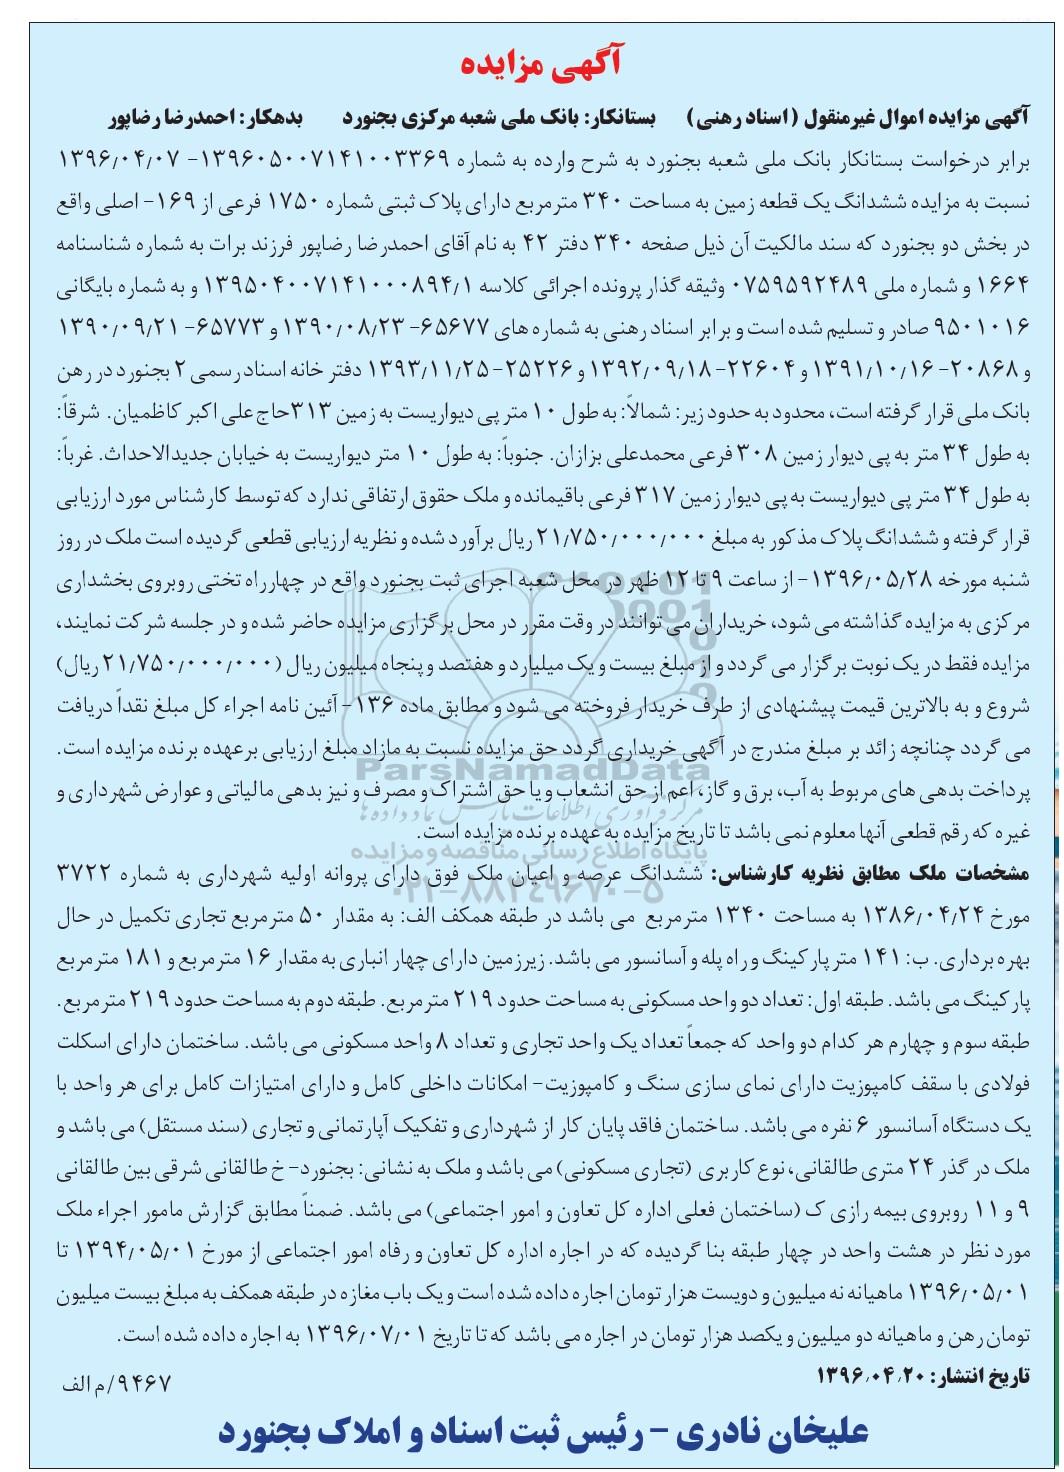 آگهی مزایده
آگهی مزایده اموال غیرمنقول (اسناد رهنی) بستانکار: بانک ملی شعبه مرکزی بجنورد بدهکار: احمدرضا رضاپور
برابر درخواست بستانکار بانک ملی شعبه بجنورد به شرح وارده به شماره ۱۳۹۶۰۵۰۰۷۱۴۱۰۰۳۳۶۹- ۱۳۹۶/۰۴/۰۷
نسبت به مزایده ششدانگ یک قطعه زمین به مساحت ۳۴۰ مترمربع دارای پلاک ثبتی شماره ۱۷۵۰ فرعی از ۱۶۹- اصلی واقع
در بخش دو بجنورد که سند مالکیت آن ذیل صفحه ۳۴۰ دفتر ۴۲ به نام آقای احمدرضا رضاپور فرزند برات به شماره شناسنامه
۱۶۶۴ و شماره ملی ۰۷۵۹۵۹۲۴۸۹ وثیقه گذار پرونده اجرائی کلاسه ۱۳۹۵۰۴۰۰۷۱۴۱۰۰۰۸۹۴/۱ و به شماره بایگانی
۹۵۰۱۰۱۶ صادر و تسلیم شده است و برابر اسناد رهنی به شماره های ۶۵۶۷۷- ۱۳۹۰/۰۸/۲۳ و ۶۵۷۷۳- ۱۳۹۰/۰۹/۲۱
و ۲۰۸۶۸- ۱۳۹۱/۱۰/۱۶ و ۲۲۶۰۴- ۱۳۹۲/۰۹/۱۸ و ۲۵۲۲۶- ۱۳۹۳/۱۱/۲۵ دفتر خانه اسناد رسمی ۲ بجنورد در رهن
بانک ملی قرار گرفته است، محدود به حدود زیر: شمالاً: به طول ۱۰ متر پی دیواریست به زمین ۳۱۳ حاج علی اکبر کاظمیان. شرقاً:
به طول ۳۴ متر به پی دیوار زمین ۳۰۸ فرعی محمدعلی بزازان. جنوباً: به طول ۱۰ متر دیواریست به خیابان جدیدالاحداث. غرباً:
به طول ۳۴ متر پی دیواریست به پی دیوار زمین ۳۱۷ فرعی باقیمانده و ملک حقوق ارتفاقی ندارد که توسط کارشناس مورد ارزیابی
قرار گرفته و ششدانگ پلاک مذکور به مبلغ ۲۱/۷۵۰/۰۰۰/۰۰۰ ریال برآورد شده و نظریه ارزیابی قطعی گردیده است ملک در روز
شنبه مورخه ۱۳۹۶/۰۵/۲۸- از ساعت ۹ تا ۱۲ ظهر در محل شعبه اجرای ثبت بجنورد واقع در چهارراه تختی روبروی بخشداری
مرکزی به مزایده گذاشته می شود، خریداران می توانند در وقت مقرر در محل برگزاری مزایده حاضر شده و در جلسه شرکت نمایند،
مزایده فقط در یک نوبت برگزار می گردد و از مبلغ بیست و یک میلیارد و هفتصد و پنجاه میلیون ریال (۲۱/۷۵۰/۰۰۰/۰۰۰ ریال)
شروع و به بالاترین قیمت پیشنهادی از طرف خریدار فروخته می شود و مطابق ماده ۱۳۶- آئین نامه اجراء کل مبلغ نقداً دریافت
می گردد چنانچه زائد بر مبلغ مندرج در آگهی خریداری گردد حق مزایده نسبت به مازاد مبلغ ارزیابی برعهده برنده مزایده است.
ParsNamadData
پرداخت بدهی های مربوط به آب، برق و گاز، اعم از حق انشعاب و یا حق اشتراک و مصرف و نیز بدهی مالیاتی و عوارض شهرداری و
مرکز فرآوری اطلاعات پارس نماد داده ها
غیره که رقم قطعی آنها معلوم نمی باشد تا تاریخ مزایده به عهده برنده مزایده است.
پایگاه اطلاع رسانی مناقصه و مزایده
مشخصات ملک مطابق نظریه کارشناس: ششدانگ عرصه و اعیان ملک فوق دارای پروانه اولیه شهرداری به شماره ۳۷۲۲
۰۲۱-۸۸۳۴۹۶۷۰-۵
مورخ ۱۳۸۶/۰۴/۲۴ به مساحت ۱۳۴۰ مترمربع می باشد در طبقه همکف الف: به مقدار ۵۰ مترمربع تجاری تکمیل در حال
بهره برداری. ب: ۱۴۱ متر پارکینگ و راه پله و آسانسور می باشد. زیرزمین دارای چهار انباری به مقدار ۱۶ مترمربع و ۱۸۱ مترمربع
پارکینگ می باشد. طبقه اول: تعداد دو واحد مسکونی به مساحت حدود ۲۱۹ مترمربع. طبقه دوم به مساحت حدود ۲۱۹ مترمربع.
طبقه سوم و چهارم هر کدام دو واحد که جمعاً تعداد یک واحد تجاری و تعداد ۸ واحد مسکونی می باشد. ساختمان دارای اسکلت
فولادی با سقف کامپوزیت دارای نمای سازی سنگ و کامپوزیت- امکانات داخلی کامل و دارای امتیازات کامل برای هر واحد با
یک دستگاه آسانسور ۶ نفره می باشد. ساختمان فاقد پایان کار از شهرداری و تفکیک آپارتمانی و تجاری (سند مستقل) می باشد و
ملک در گذر ۲۴ متری طالقانی، نوع کاربری (تجاری مسکونی) می باشد و ملک به نشانی: بجنورد- خ طالقانی شرقی بین طالقانی
۹ و ۱۱ روبروی بیمه رازی ک (ساختمان فعلی اداره کل تعاون و امور اجتماعی) می باشد. ضمناً مطابق گزارش مامور اجراء ملک
مورد نظر در هشت واحد در چهار طبقه بنا گردیده که در اجاره اداره کل تعاون و رفاه امور اجتماعی از مورخ ۱۳۹۴/۰۵/۰۱ تا
۱۳۹۶/۰۵/۰۱ ماهیانه نه میلیون و دویست هزار تومان اجاره داده شده است و یک باب مغازه در طبقه همکف به مبلغ بیست میلیون
تومان رهن و ماهیانه دو میلیون و یکصد هزار تومان در اجاره می باشد که تا تاریخ ۱۳۹۶/۰۷/۰۱ به اجاره داده شده است.
تاریخ انتشار: ۱۳۹۶/۰۴/۲۰
۹۴۶۷/م الف
علیخان نادری – رئیس ثبت اسناد و املاک بجنورد